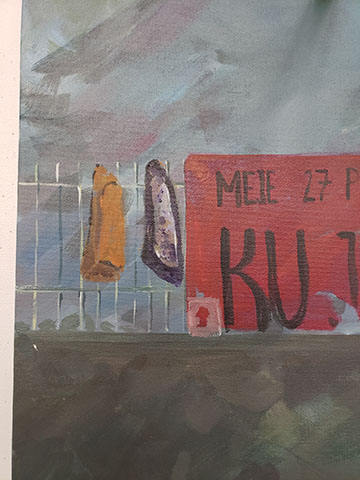 MEIE 27 P
KU.